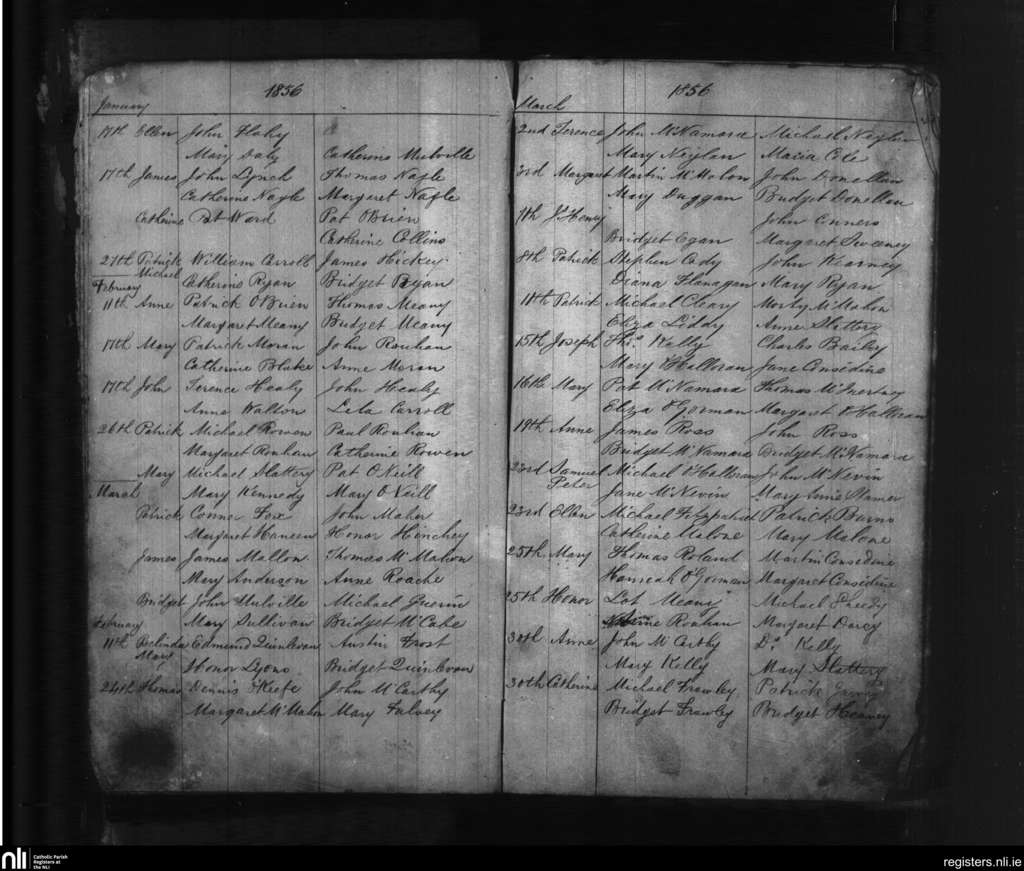 1856
January
17th Ellen John Flahy
Mary Daly Catherine Mulville
17th James John Lynch Thomas Nagle
Catherine Nagle Margaret Nagle
Catherine Pat Ward Pat O'Brien
Catherine Collins
27th Patrick William Carroll James Hickey
Michael Catherine Ryan Bridget Ryan
February
11th Anne Patrick O'Brien Thomas Meany
Margaret Meany Bridget Meany
17th Mary Patrick Moran John Rouhan
Catherine Blake Anne Moran
17th John Terence Healy John Healy
Anne Walton Lila Carroll
26th Patrick Michael Rowen Paul Rouhan
Margaret Rouhan Catherine Rowen
Mary Michael Slattery Pat O'Neill
March Mary Kennedy Mary O'Neill
Patrick Connor Fox John Maher
Margaret Haneen Honor Henchey
James James Mallon Thomas McMahon
Mary Anderson Anne Roache
Bridget John Mulville Michael Guerin
February Mary Sullivan Bridget McCabe
11th Belinda Edmund Quinlevan Austin Frost
Mary Honor Lyons Bridget Quinlevan
24th Thomas Dennis O'Keefe John McCarthy
Margaret McMahon Mary Falvey
1856
March
2nd Terence John McNamara Michael Neylon
Mary Neylan Maria Cole
3rd Margaret Martin McMolon John Donellan
Mary Duggan Bridget Donellan
7th Js Henry John Conners
Bridget Egan Margaret Sweeney
8th Patrick Stephen Cody John Kearney
Diana Flanagan Mary Ryan
11th Patrick Michael Cleary Morty McMahon
Eliza Liddy Anne Slattery
15th Joseph Thos Kelly Charles Bailey
Mary O'Halloran Jane Considine
16th Mary Pat McNamara Thomas McInerney
Eliza O'Gorman Margaret O'Halloran
19th Anne James Ross John Ross
Bridget McNamara Bridget McNamara
23rd Samuel Michael O'Halloran John McNevin
Peter Jane McNevin Mary Anne Stamer
23rd Ellen Michael Fitzpatrick Patrick Burns
Catherine Malone Mary Malone
25th Mary Thomas Roland Martin Considine
Hannah O'Gorman Margaret Considine
25th Honor Lot Meany Michael Sheedy
Rouhan Margaret Darcy
30th Anne John McCarthy Do Kelly
Mary Kelly Mary Slattery
30th Catherine Michael Frawley Patrick
Bridget Frawley Bridget Heaney
nli Catholic Parish
Registers at
the NLI
registers.nli.ie